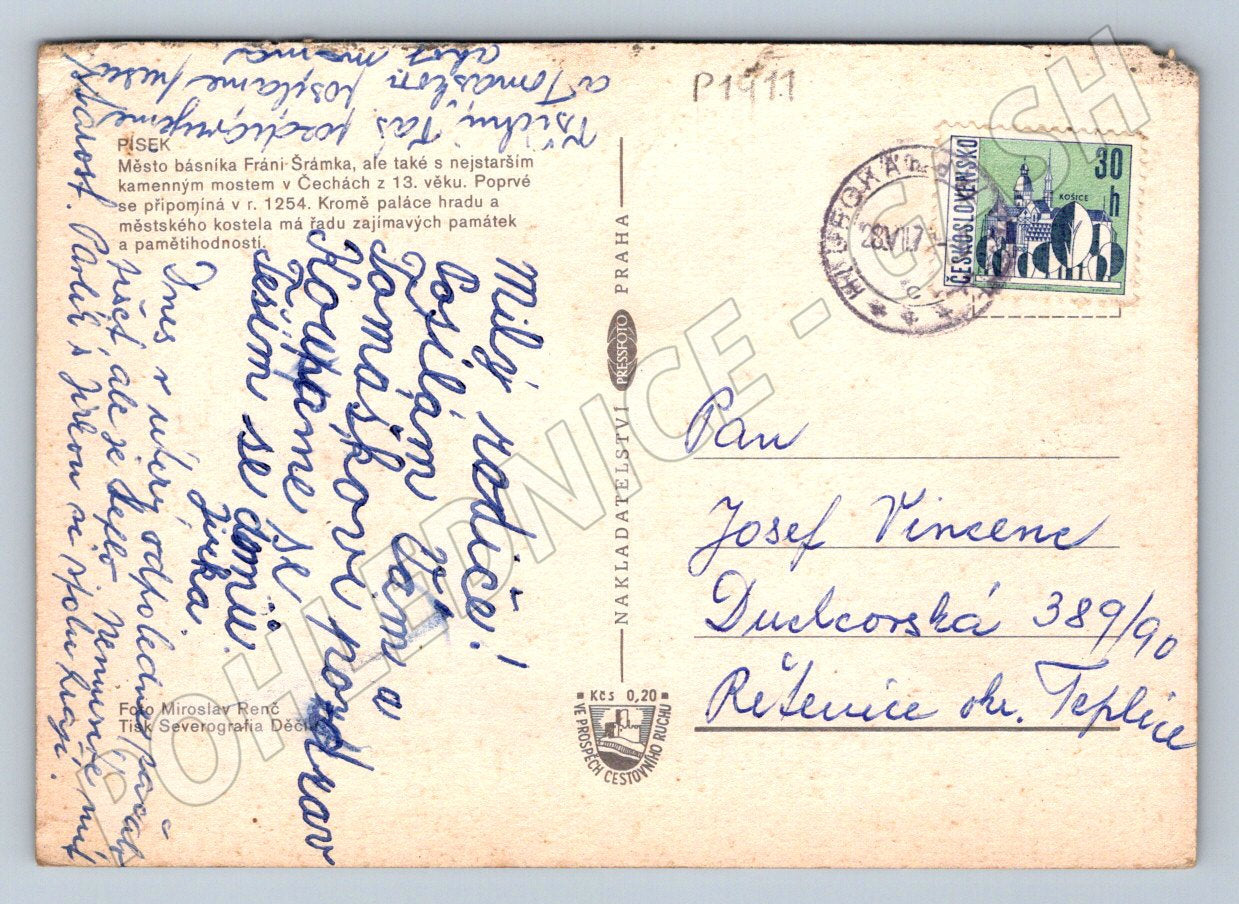 P1911
PÍSEK
Město básníka Fráni Šrámka, ale také s nejstarším
kamenným mostem v Čechách z 13. věku. Poprvé
se připomíná v r. 1254. Kromě paláce hradu a
městského kostela má řadu zajímavých památek
a pamětihodností.
Milý rodiče!
Posílám Vám a
Tomáškovi pozdrav
Koupame se
Těšim se domů.
Jirka.
Dnes v úterý odpoledne
pršet ale je teplo. Nemusíte mít
starost. Pavlík s Jirkou si spolu hrají.
Všichni Vás pozdravujeme
a Tomáškom posílame pusu
mama
Foto Miroslav Renč
Tisk Severografia Děčín
NAKLADATELSTVÍ PRESSFOTO PRAHA
Kčs 0,20
VE PROSPĚCH CESTOVNÍHO RUCHU
ČESKOSLOVENSKO
30 h
KOŠICE
Pan
Josef Vincenc
Duchcovská 389/90
Řetenice okr. Teplice
POHLEDNICE - CASH